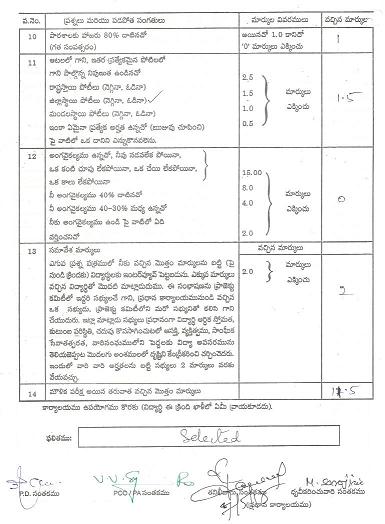 వ.నెం. ప్రశ్నలు మరియు పదపోత సంగతులు మార్కుల వివరములు వచ్చిన మార్కులు
10 పాఠశాలకు హాజరు 80% దాటినచో అయినచో 1.0 కానిచో 1
(గత సంవత్సరం) '0' మార్కులు ఎక్కించు
11 ఆటలలో గాని, ఇతర ప్రత్యేకమైన పోటీలలో
గాని పాల్గొన్న నిపుణత ఉండినచో 2.5
రాష్ట్రస్థాయి పోటీలు (నెగ్గినా, ఓడినా) 1.5 మార్కులు
జిల్లాస్థాయి పోటీలు (నెగ్గినా, ఓడినా) ✓ 1.0 ఎక్కించు 1.5
మండలస్థాయి పోటీలు (నెగ్గినా, ఓడినా) 0.5
ఇంకా ఏమైనా ప్రత్యేక అర్హత ఉన్నచో (ఋజువు చూపించి)
పై వాటిలో ఒక దానిని ఎన్నుకొనవలెను.
12 అంగవైకల్యము ఉన్నచో, నీవు నడవలేక పోయినా,
ఒక కంటి చూపు లేకపోయినా, ఒక చేయి లేకపోయినా 15.00
ఒక కాలు లేకపోయినా 8.0 మార్కులు
నీ అంగవైకల్యము 40% దాటినచో 4.0 ఎక్కించు 0
నీ అంగవైకల్యము 40-30% మధ్య ఉన్నచో
నీకు అంగవైకల్యము ఉండి పై వాటిలో ఏది 2.0
వర్తించనిచో
13 సమావేశ మార్కులు వచ్చిన మార్కులు
ఎగువ ప్రశ్న పత్రములో నీకు వచ్చిన మొత్తం మార్కులను బట్టి (పై
నుండి క్రిందకు) విద్యార్థులకు ఇంటర్వ్యూవ్ పెట్టబడును. ఎక్కువ మార్కులు 2.0 మార్కులు
వచ్చిన విద్యార్థితో మొదటి మాట్లాడుదుము. ఈ సంభాషణను ప్రాజెక్టు ఎక్కించు
కమిటీలో ఇద్దరి సభ్యులచే గాని, (ప్రధాన కార్యాలయమునుండి వచ్చిన 2
ఒక సభ్యుడు, ప్రాజెక్టు కమిటీలోని మరో సభ్యునితో కలిసి గాని
చేయుదురు. ఇట్లా మాట్లాడు సభ్యులు ప్రధానంగా విద్యార్థి ఆర్థిక స్తోమత,
కుటుంబ పరిస్థితి, చదువు కొనసాగించుటలో ఆసక్తి, వ్యక్తిత్వము, సాంఘిక
ఇందులో వారి వారి అర్హతలను బట్టి సభ్యులు 2 మార్కులు వరకు
వేయవచ్చు.
14 మౌళిక పరీక్ష అయిన తరువాత వచ్చిన మొత్తం మార్కులు
కార్యాలయము ఉపయోగము కొరకు (విద్యార్థి ఈ క్రింది ఖాళీలో ఏమీ వ్రాయకూడదు).
ఫలితము: Selected
P.D. సంతకము PCO / PA సంతకము ధృవీకరించువారి సంతకము
(ప్రధాన కార్యాలయము)